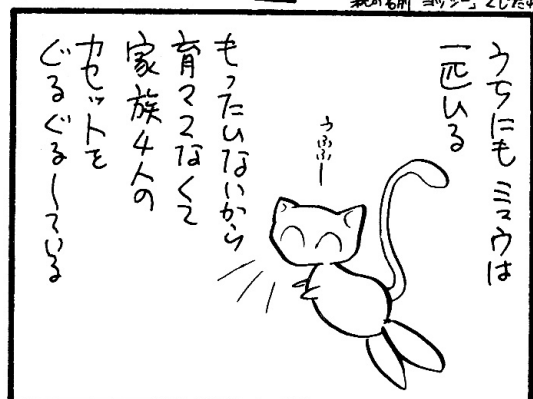 うちにもミュウは
一匹いる
うふふー
もったいないから
育ててなくて
家族4人の
カセットを
ぐるぐるしている